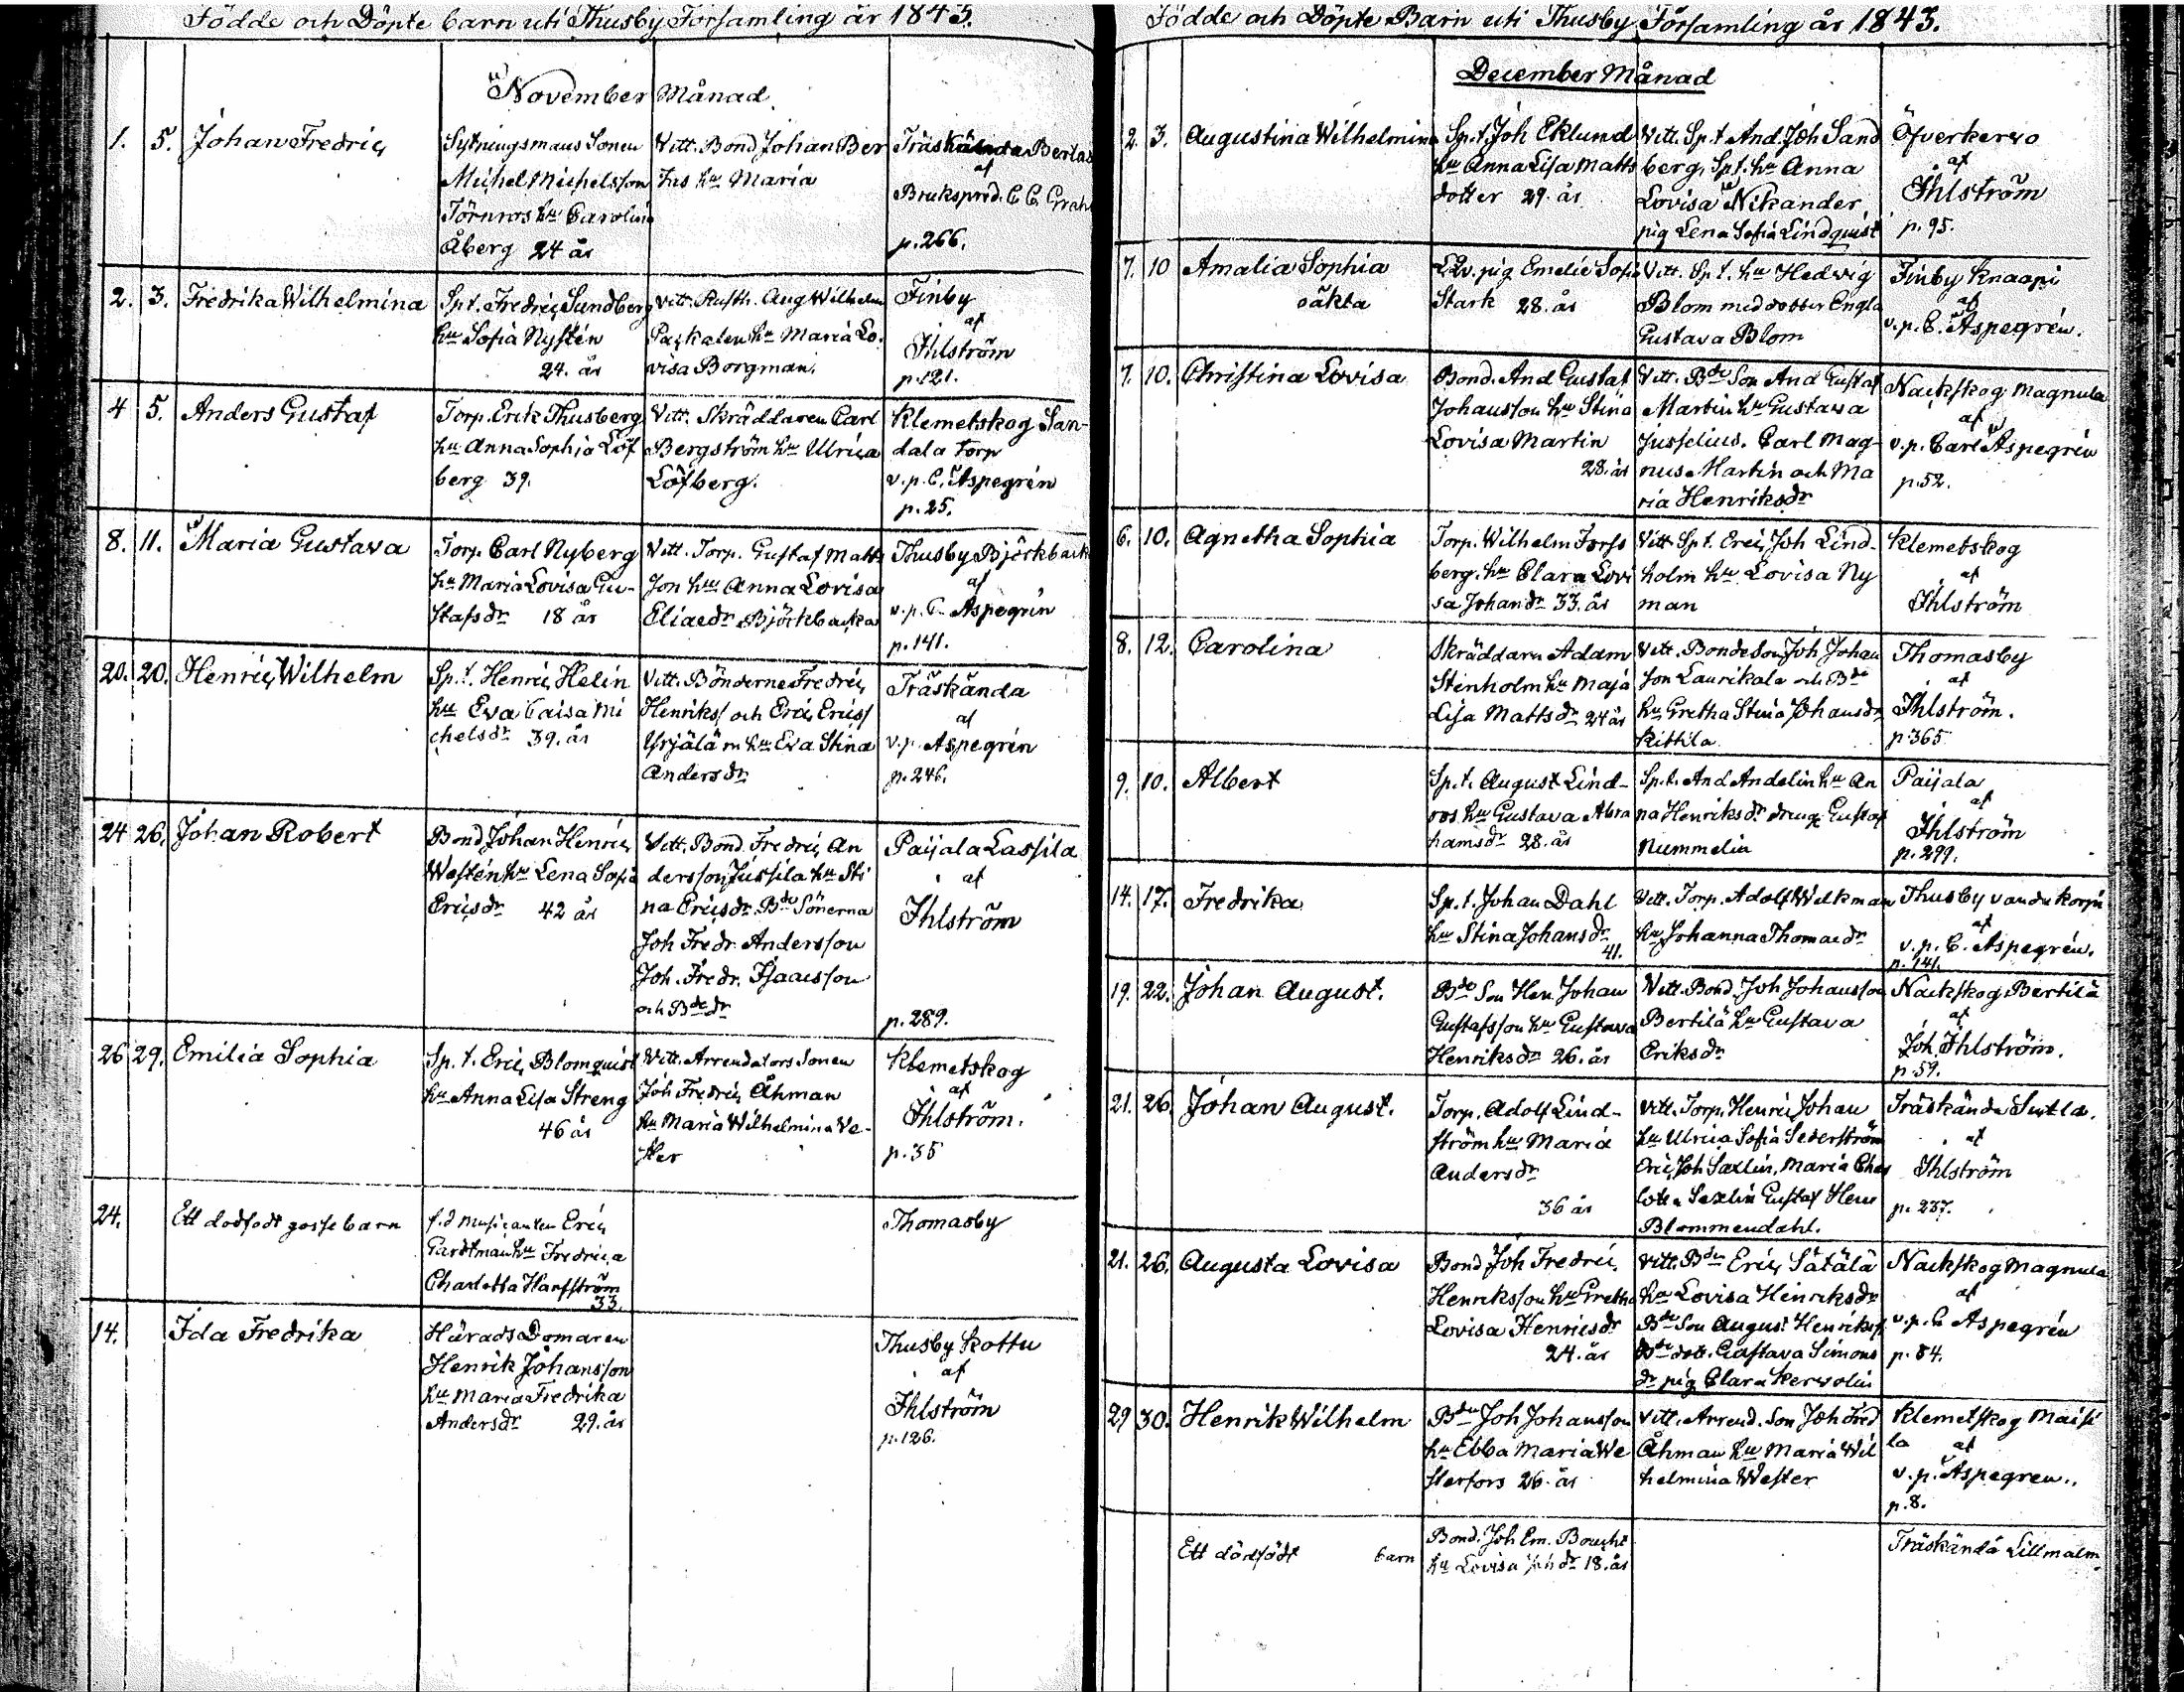 Födde och Döpte barn uti Thusby Församling år 1843.
November Månad
1. 5. Johan Fredric
Sytningsmans Sonen
Michel Michelsson
Törnros hu Carolina
Åberg 24 år
Vitt. Bond Johan Ber
tas hu Maria
Träskända Bertas
af
Brukspred. C C Grahn
p. 266.
2. 3. Fredrika Wilhelmina
Spt. Fredric Sundberg
hu Sofia Nystén
24. år
Vitt. Rusth. Aug Wilhelm
Packalen hu Maria Lo-
visa Borgman.
Finby
af
Ihlström
p. 121.
4 5. Anders Gustaf
Torp. Erik Thusberg
hu Anna Sophia Löf
berg 39.
Vitt. Skräddaren Carl
Bergström hu Ulrica
Löfberg.
Klemetskog San-
dala torp
v.p. C. Aspegrén
p. 25.
8. 11. Maria Gustava
Torp. Carl Nyberg
hu Maria Lovisa Gu-
stafsdr 18 år
Vitt. Torp. Gustaf Matts
son hu Anna Lovisa
Eliaedr Björkbacka
Thusby Björkback
af
v.p. C. Aspegrén
p. 141.
20. 20. Henric Wilhelm
Sp.t. Henric Helin
hu Eva Caisa Mi
chelsdr 39. år
Vitt. Bönderne Fredric
Henrikss och Eric Ericss
Yrjälä m hu Eva Stina
Andersdr
Träskända
af
v.p. Aspegrén
p. 246.
24 26. Johan Robert
Bond Johan Henric
Westén hu Lena Sofia
Ericsdr 42 år
Vitt. Bond. Fredric An
dersson Jussila hu Sti
na Ericsdr. Bde Sönerna
Joh Fredr. Andersson
Joh. Fredr. Isaacsson
och Bde dr
Paijala Lassila
af
Ihlström
p. 289.
26 29. Emilia Sophia
Sp. t. Eric Blomquist
hu Anna Lisa Streng
46 år
Vitt. Arrendators Sonen
Joh Fredric Åhman
hu Maria Wilhelmina We-
ster
Klemetskog
af
Ihlström.
p. 35
24. Ett dödfödt gosse barn
f.d Musicanten Eric
Gardtman hu Fredrica
Charlotta Harfström
33.
Thomasby
14. Ida Fredrika
Härads Domaren
Henrik Johansson
hu Maria Fredrika
Andersdr 29. år
Thusby Kottu
af
Ihlström
p. 126.
Födde och Döpte Barn uti Thusby Församling år 1843.
December Månad
2. 3. Augustina Wilhelmina
Sp.t. Joh Eklund
hu Anna Lisa Matts
dotter 29. år
Vitt. Sp.t And. Joh Sand
berg, Spt. hu Anna
Lovisa Nikander
pig Lena Sofia Lindquist
Öfverkervo
af
Ihlström
p. 95.
7. 10 Amalia Sophia
oäkta
Lkv. pig Emelie Sofi
Stark 28. år
Vitt. Sp t. hu Hedvig
Blom med dotter Engla
Gustava Blom
Finby Knaapi
af
v.p. C. Aspegrén.
7. 10. Christina Lovisa
Bond. And Gustaf
Johansson hu Stina
Lovisa Martin
28. år
Vitt. Bde Son And Gustaf
Martin hu Gustava
Jusselius. Carl Mag-
nus Martin och Ma
ria Henriksdr
Nackskog Magnula
af
v.p. Carl Aspegrén
p. 52.
6. 10. Agnetha Sophia
Torp. Wilhelm Forss
berg. hu Clara Lovi
sa Johandr 33. år
Vitt. Spt. Eric Joh Lind-
holm hu Lovisa Ny
man
Klemetskog
af
Ihlström
8. 12. Carolina
Skräddarn Adam
Stenholm hu Maja
Lisa Mattsdr 24 år
Vitt. Bonde Son Joh Johan
son Laurikala och Bde
hu Gretha Stina Johansdr
Kittila
Thomasby
af
Ihlström.
p 365
9. 10. Albert
Sp.t. August Lind-
roos. hu Gustava Abra
hamsdr 28. år
Sp.t. And Andelin hu An
na Henriksdr dreng Gustaf
Nummelin
Paijala
af
Ihlström
p. 299.
14. 17. Fredrika
Sp. t. Johan Dahl
hu Stina Johansdr
41.
Vitt. Torp. Adolf Welkman
hu Johanna Thomaedr
Thusby
af
v.p. C. Aspegrén.
p. 141.
19. 22. Johan August.
Bde Son Hen Johan
Gustafsson hu Gustava
Henriksdr 26. år
Vitt. Bond. Joh Johansson
Bertilä hu Gustava
Eriksdr
Nackskog Bertilä
af
Joh Ihlström.
p 59.
21. 26. Johan August.
Torp. Adolf Lind-
ström hu Maria
Andersdr
36 år
Vitt. Torp. Henric Johan
hu Ulrica Sofia Sederström
Eric Joh Saxlin, Maria Char
lotta Saxlin Gustaf Hen
Blommendahl.
Träskända
af
Ihlström
p. 237.
21. 26. Augusta Lovisa
Bond Joh Fredric
Henriksson hu Gretha
Lovisa Henricsdr
24. år
Vitt. Bdn Eric Sätälä
hu Lovisa Henriksdr
Bde Son August Henrikss
Bde dott. Gustava Simons
dr pig Clara Kervolin
Nackskog Magnula
af
v.p. C Aspegrén
p. 54.
29 30. Henrik Wilhelm
Bdn Joh Johansson
hu Ebba Maria We
sterfors 26. år
Vitt. Arrend. Son Joh Fred
Åhman hu Maria Wil
helmina Wester
Klemetskog Maisi
la af
v.p. Aspegren.
p. 8.
Ett dödfödt barn
Bond. Joh Em.
hu Lovisa dr 18. år
Träskända Lillmalm